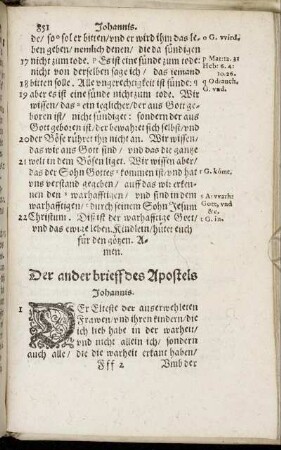 831 Johannis.
de/ so sol er bitten/ vnd er wird ihn das le
ben geben/ nemlich denen/ die da sündigen
17 nicht zum tode. Es ist eine sünde zum tode:
nicht von derselben sage ich/ das jemand
18 bitten solle. Alle vngerechtigkeit ist sünde:
19 aber es ist eine sünde nicht zum tode. Wir
wissen/ das ein jeglicher/ der aus Gott ge
boren ist/ nicht sündiget: sondern der aus
Gott geboren ist/ der bewahret sich selbst/ vnd
20 der Böse rühret ihn nicht an. Wir wissen/
das wir aus Gott sind/ vnd das die gantze
21 welt in dem Bösen liget. Wir wissen aber/
das der Sohn Gottes kommen ist/ vnd hat
vns verstand gegeben/ auff das wir erken
nen den warhafftigen/ vnd sind in dem
warhafftigen/ durch seinem Sohn Jesum
22 Christum. Diß ist der warhafftige Gott/
vnd das ewige leben. Kindlein/ hütet euch
für den götzen. A=
men.
o G. vried.
p Matt. 12. 31
Hebr. 6. 4:
10. 26.
q Od. auch,
G. vnd.
r G. kömt.
G. in.
Der ander brieff des Apostels
Johannis.
1 DEr Elteste der auserwehleten
Frawen/ vnd ihren kindern/ die
ich lieb habe in der warheit/
vnd nicht allein ich/ sondern
auch alle/ die die warheit erkant haben/
Fff 2 Vmb der